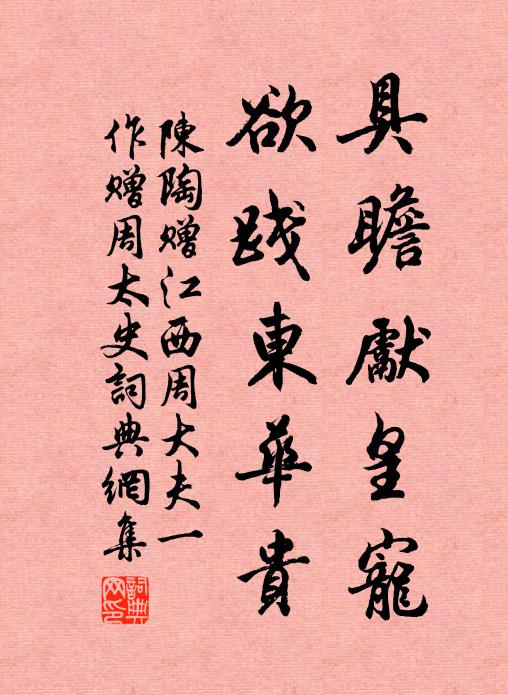 具瞻獻皇寵
欲踐東華貴
陳陶贈江西周大夫一
作贈周太史詞典網集
詞典
网印